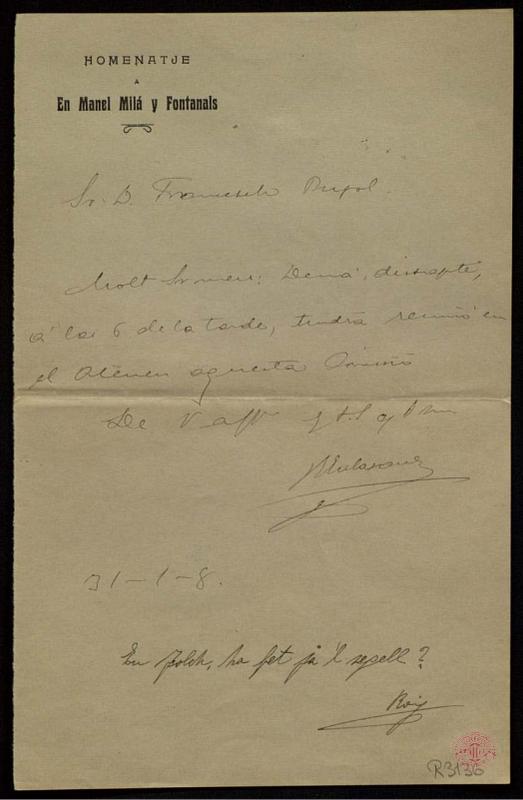 HOMENATJE
A
En Manel Milá y Fontanals
Sr. D. Francesch Pujol.
Molt Sr meu: Demá, dissapte,
á las 6 de la tarde, tindrá reunió en
el Ateneu aquesta
De V
31-1-8.
En Folch, ha fet ja 'l segell?
Roig
R3136